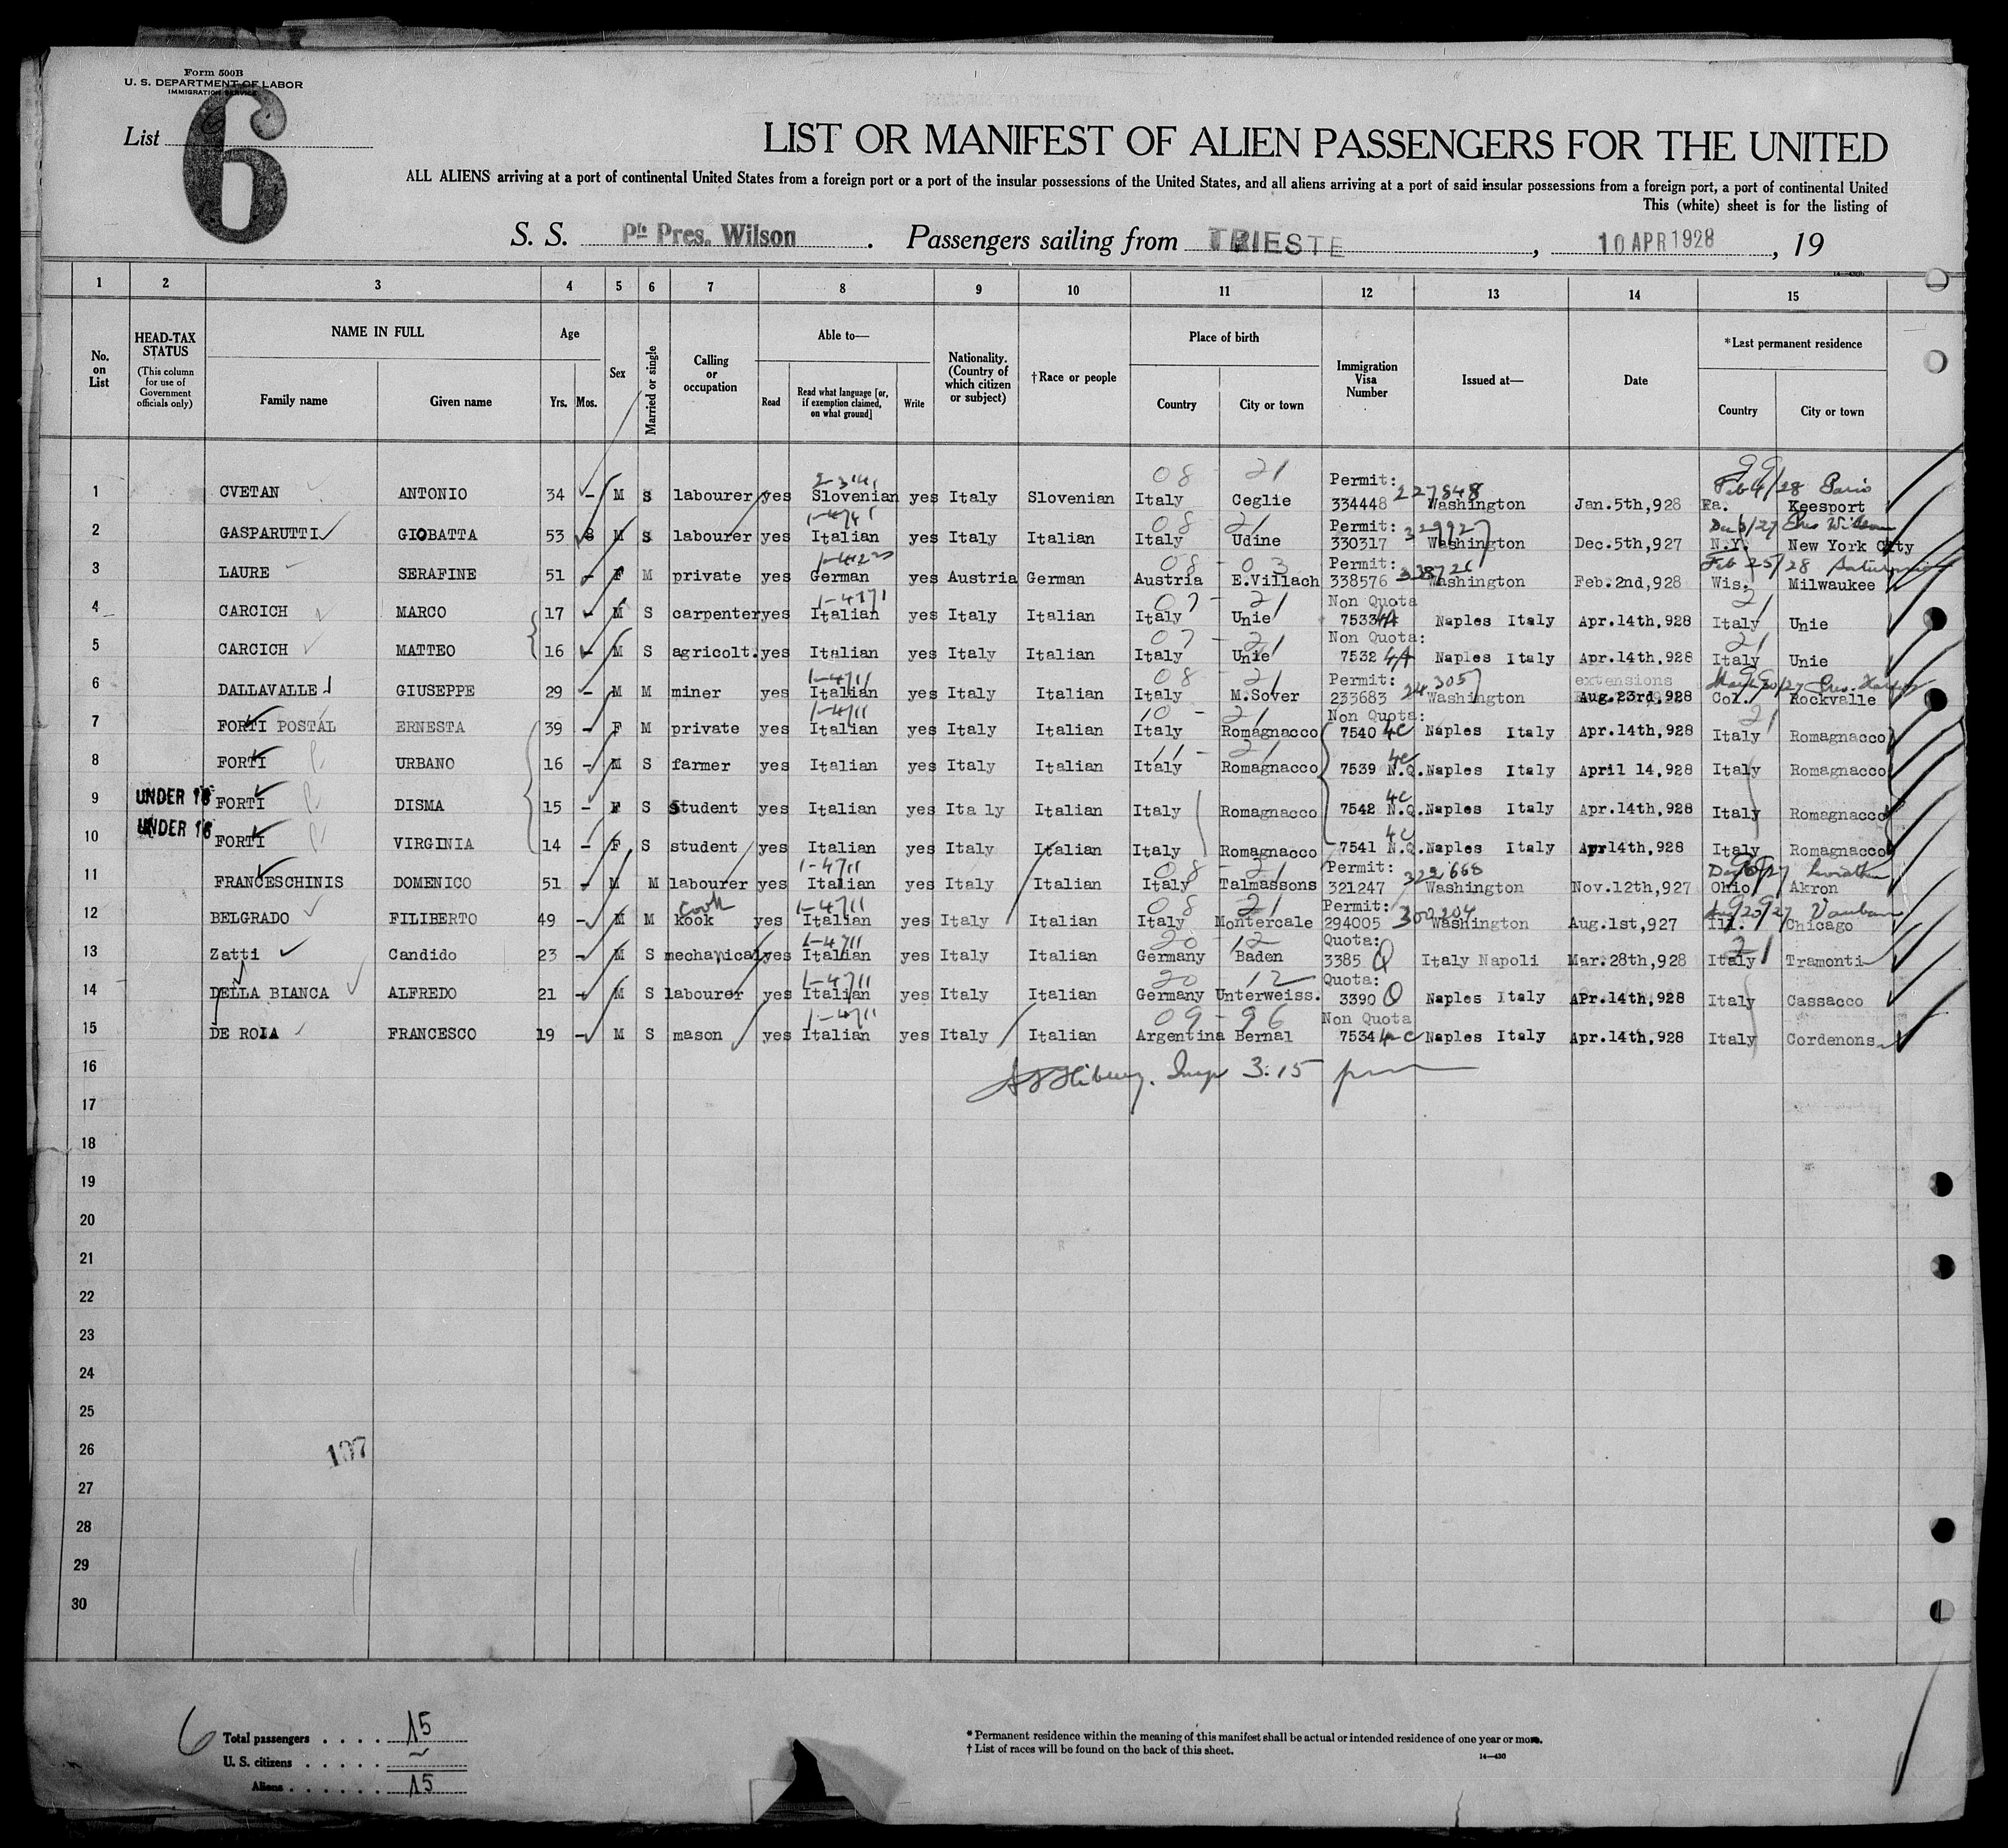 Form 500B
U. S. DEPARTMENT OF LABOR
IMMIGRATION SERVICE
List 6
LIST OR MANIFEST OF ALIEN PASSENGERS FOR THE UNITED
ALL ALIENS arriving at a port of continental United States from a foreign port or a port of the insular possessions of the United States, and all aliens arriving at a port of said insular possessions from a foreign port, a port of continental United
This (white) sheet is for the listing of
S. S. Pfo Pres. Wilson . Passengers sailing from TRIESTE , 10 APR 1928 , 19
1 2 3 4 5 6 7 8 9 10 11 12 13 14 15
No. on List
HEAD-TAX STATUS (This column for use of Government officials only)
NAME IN FULL Family name Given name
Age Yrs. Mos.
Sex
Married or single
Calling or occupation
Able to— Read Read what language [or, if exemption claimed, on what ground] Write
Nationality. (Country of which citizen or subject)
†Race or people
Place of birth Country City or town
Immigration Visa Number
Issued at—
Date
*Last permanent residence Country City or town
08 - 21 Permit: 227848 Feb 4/28 Paris
1 CVETAN ANTONIO 34 - M S labourer yes Slovenian yes Italy Slovenian Italy Ceglie 334448 Washington Jan.5th,928 Pa. Keesport
1-4711 08 21 Permit: 329927
2 GASPARUTTI GIOBATTA 53 8 M S labourer yes Italian yes Italy Italian Italy Udine 330317 Washington Dec.5th,927 N.Y. New York City
08 - 03 Permit: 338726 Feb 25/28
3 LAURE SERAFINE 51 - F M private yes German yes Austria German Austria E.Villach 338576 Washington Feb.2nd,928 Wis. Milwaukee
1-4711 07 - 21 Non Quota 21
4 CARCICH MARCO 17 - M S carpenter yes Italian yes Italy Italian Italy Unie 7533 4A Naples Italy Apr.14th,928 Italy Unie
07 - 21 Non Quota: 21
5 CARCICH MATTEO 16 - M S agricolt. yes Italian yes Italy Italian Italy Unie 7532 4A Naples Italy Apr.14th,928 Italy Unie
1-4711 08 - 21 Permit: 243057 extensions
6 DALLAVALLE GIUSEPPE 29 - M M miner yes Italian yes Italy Italian Italy M.Sover 233683 Washington Aug.23rd,928 Col. Rockvalle
1-4711 10 - 21 Non Quota: 21
7 FORTI POSTAL ERNESTA 39 - F M private yes Italian yes Italy Italian Italy Romagnacco 7540 4C Naples Italy Apr.14th,928 Italy Romagnacco
11 - 21 4C
8 FORTI URBANO 16 - M S farmer yes Italian yes Italy Italian Italy Romagnacco 7539 N.Q. Naples Italy April 14,928 Italy Romagnacco
UNDER 16 4C
9 FORTI DISMA 15 - F S Student yes Italian yes Ita ly Italian Italy Romagnacco 7542 N.Q. Naples Italy Apr.14th,928 Italy Romagnacco
UNDER 16 4C
10 FORTI VIRGINIA 14 - F S student yes Italian yes Italy Italian Italy Romagnacco 7541 N.Q. Naples Italy Apr14th,928 Italy Romagnacco
1-4711 08 - 21 Permit: 322668 Leviathan
11 FRANCESCHINIS DOMENICO 51 - M M labourer yes Italian yes Italy Italian Italy Talmassons 321247 Washington Nov.12th,927 Ohio Akron
Cook 1-4711 08 21 Permit: 300204 Aug/20/27 Vauban
12 BELGRADO FILIBERTO 49 - M M kook yes Italian yes Italy Italian Italy Montercale 294005 Washington Aug.1st,927 Ill. Chicago
1-4711 20 - 12 Quota: 21
13 Zatti Candido 23 - M S mechanical yes Italian yes Italy Italian Germany Baden 3385 Q Italy Napoli Mar.28th,928 Italy Tramonti
1-4711 20 - 12 Quota:
14 DELLA BIANCA ALFREDO 21 - M S labourer yes Italian yes Italy Italian Germany Unterweiss. 3390 Q Naples Italy APr.14th,928 Italy Cassacco
1-4711 09 - 96 Non Quota
15 DE ROIA FRANCESCO 19 - M S mason yes Italian yes Italy Italian Argentina Bernal 7534 4C Naples Italy Apr.14th,928 Italy Cordenons
16 Insp 3:15 pm
17
18
19
20
21
22
23
24
25
26
107
27
28
29
30
6 Total passengers . . . . 15
U. S. citizens . . . . .
Aliens . . . . . . 15
* Permanent residence within the meaning of this manifest shall be actual or intended residence of one year or more.
† List of races will be found on the back of this sheet.
14—430